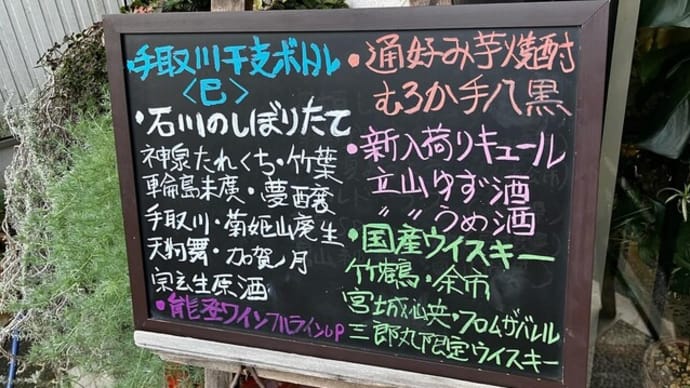 ・手取川干支ボトル
〈巳〉
・石川のしぼりたて
神泉たれくち・竹葉
輪島末廣・夢醸
手取川・菊姫山廃生
天狗舞・加賀ノ月
宗玄生原酒
・能登ワインフルラインUP
・通好み芋焼酎
むろか手八黒
・新入荷リキュール
立山ゆず酒
〃 〃うめ酒
・国産ウイスキー
竹鶴・余市
宮城仙央・フロムザバレル
三郎丸限定ウイスキー